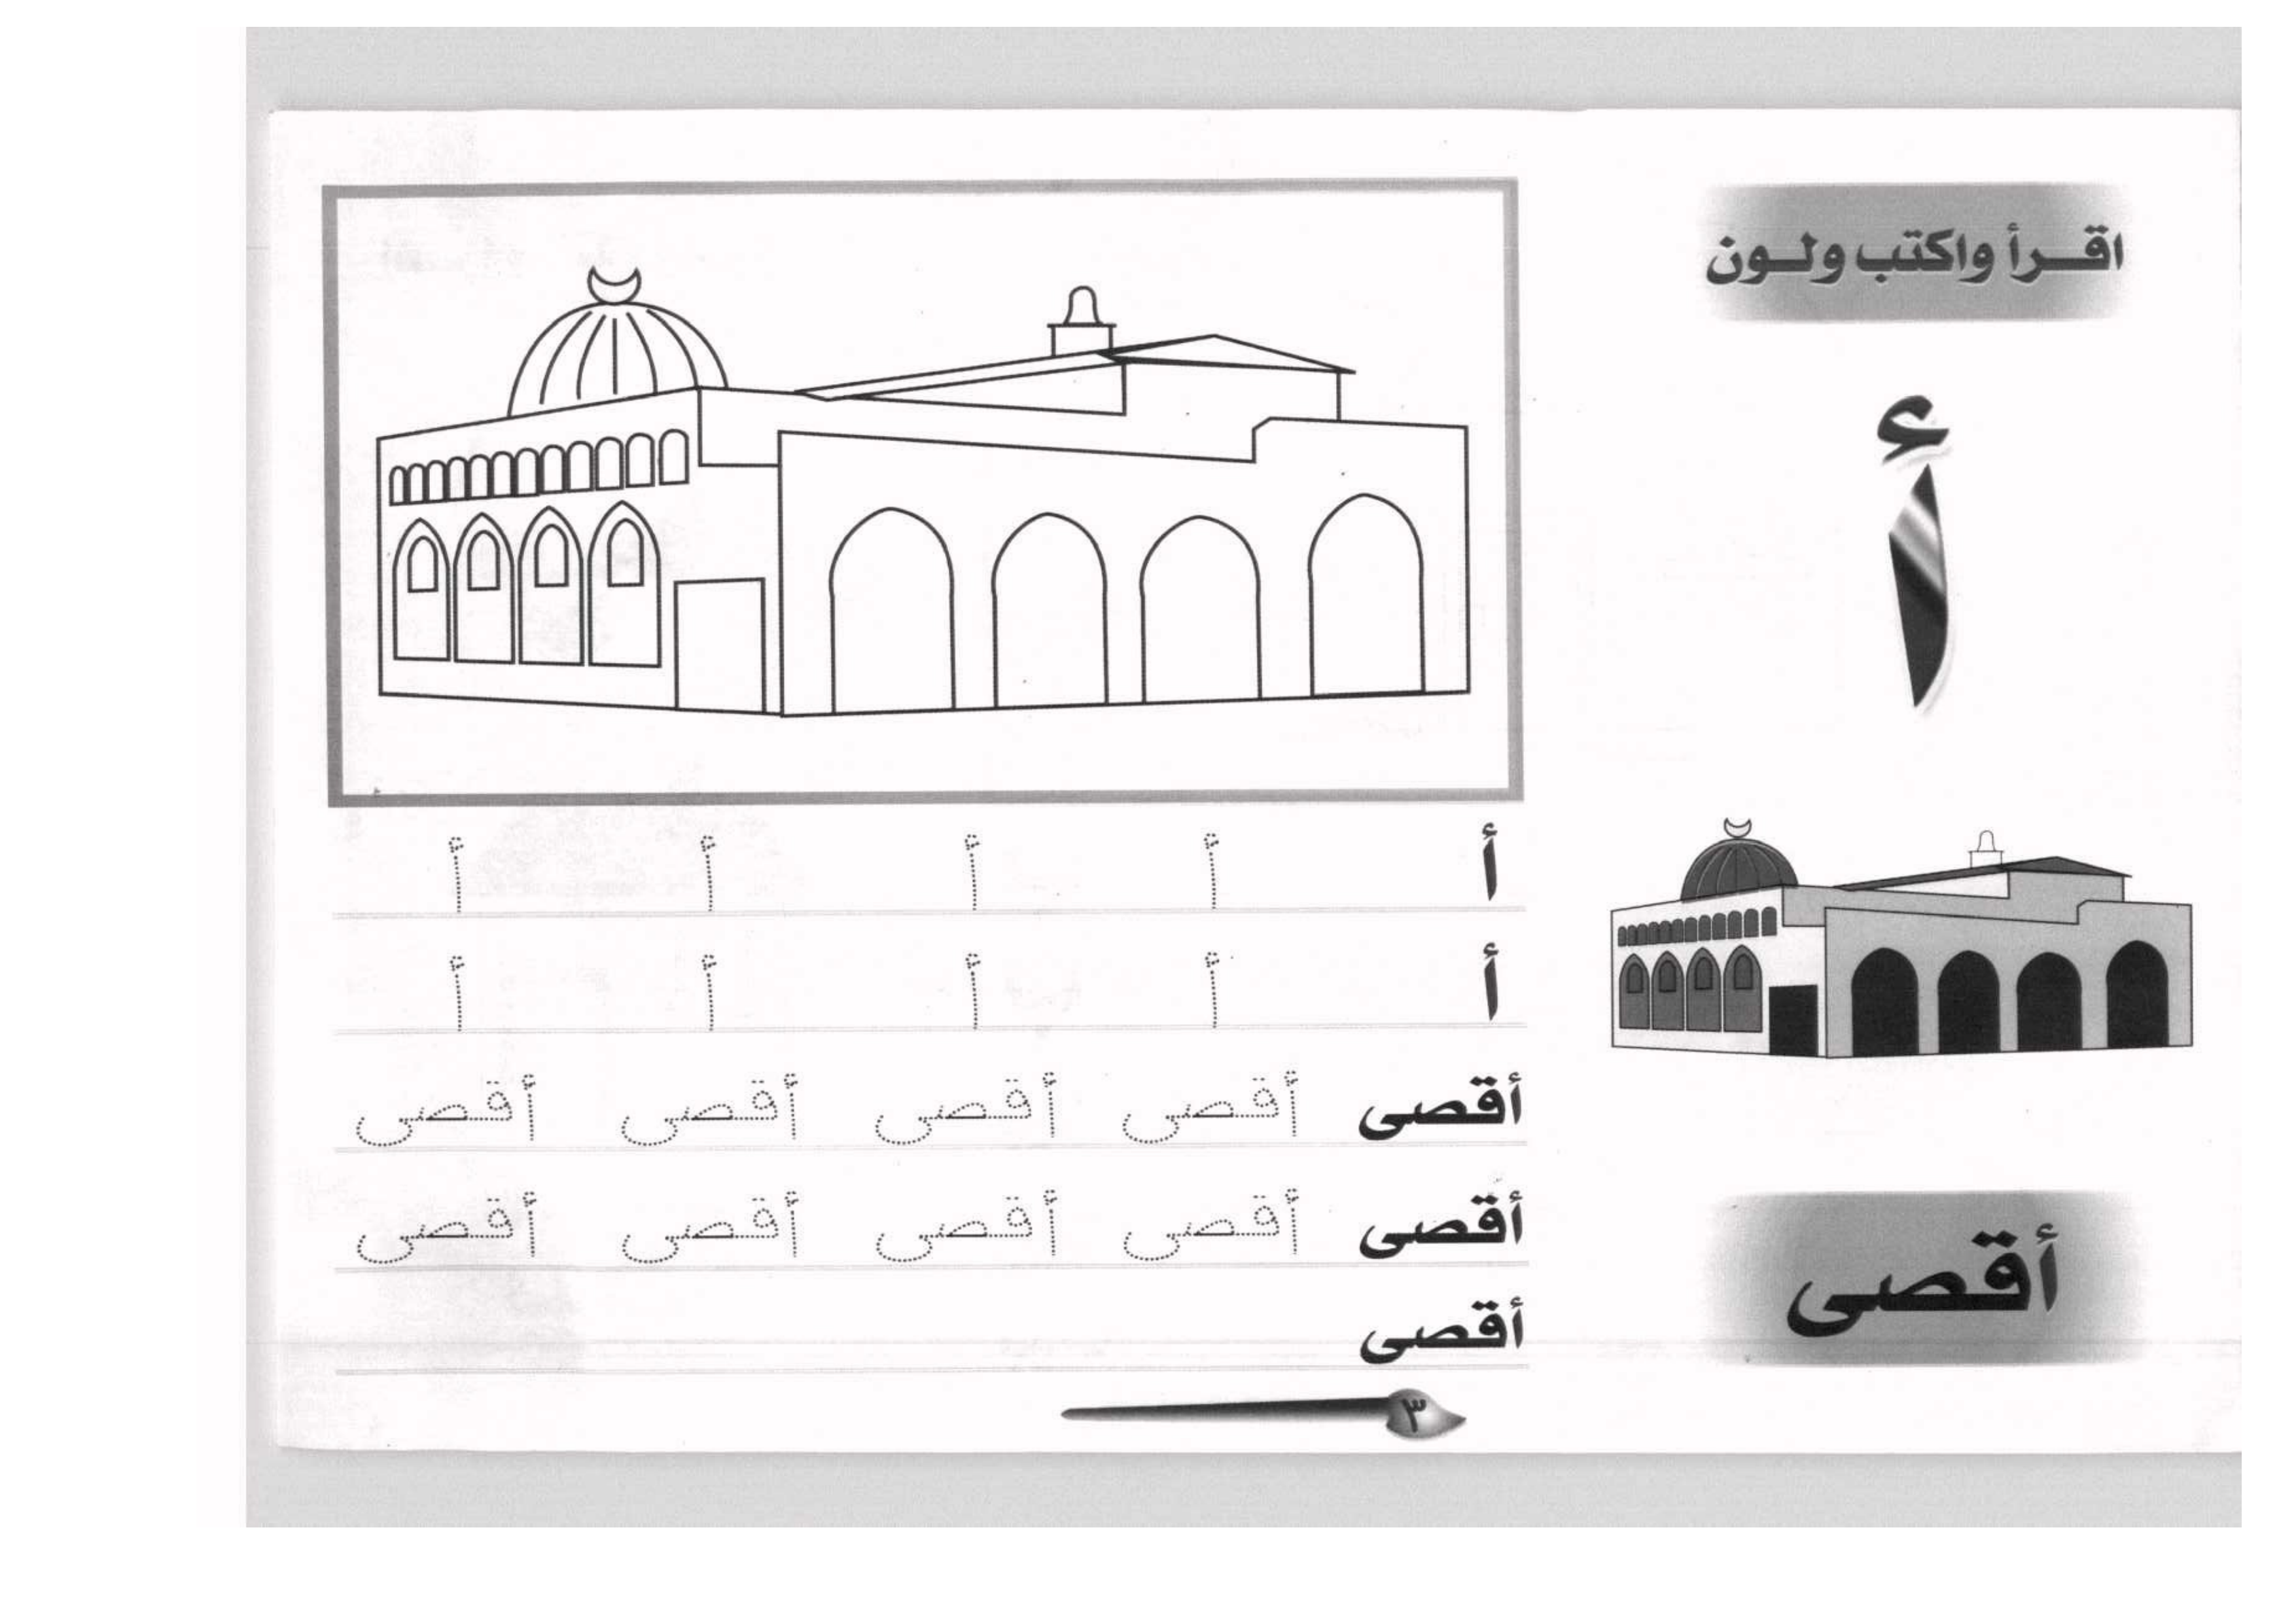 اقرأ واكتب ولون
أ
أقصى
أ أ أ أ أ
أ أ أ أ أ
أقصى أقصى أقصى أقصى أقصى
أقصى أقصى أقصى أقصى أقصى
أقصى
٣